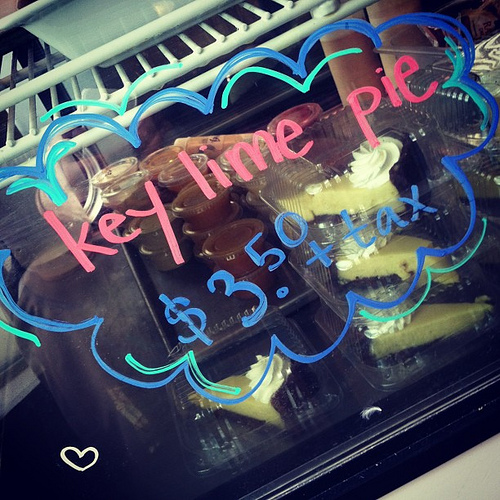 key lime pie
$3.50 + tax